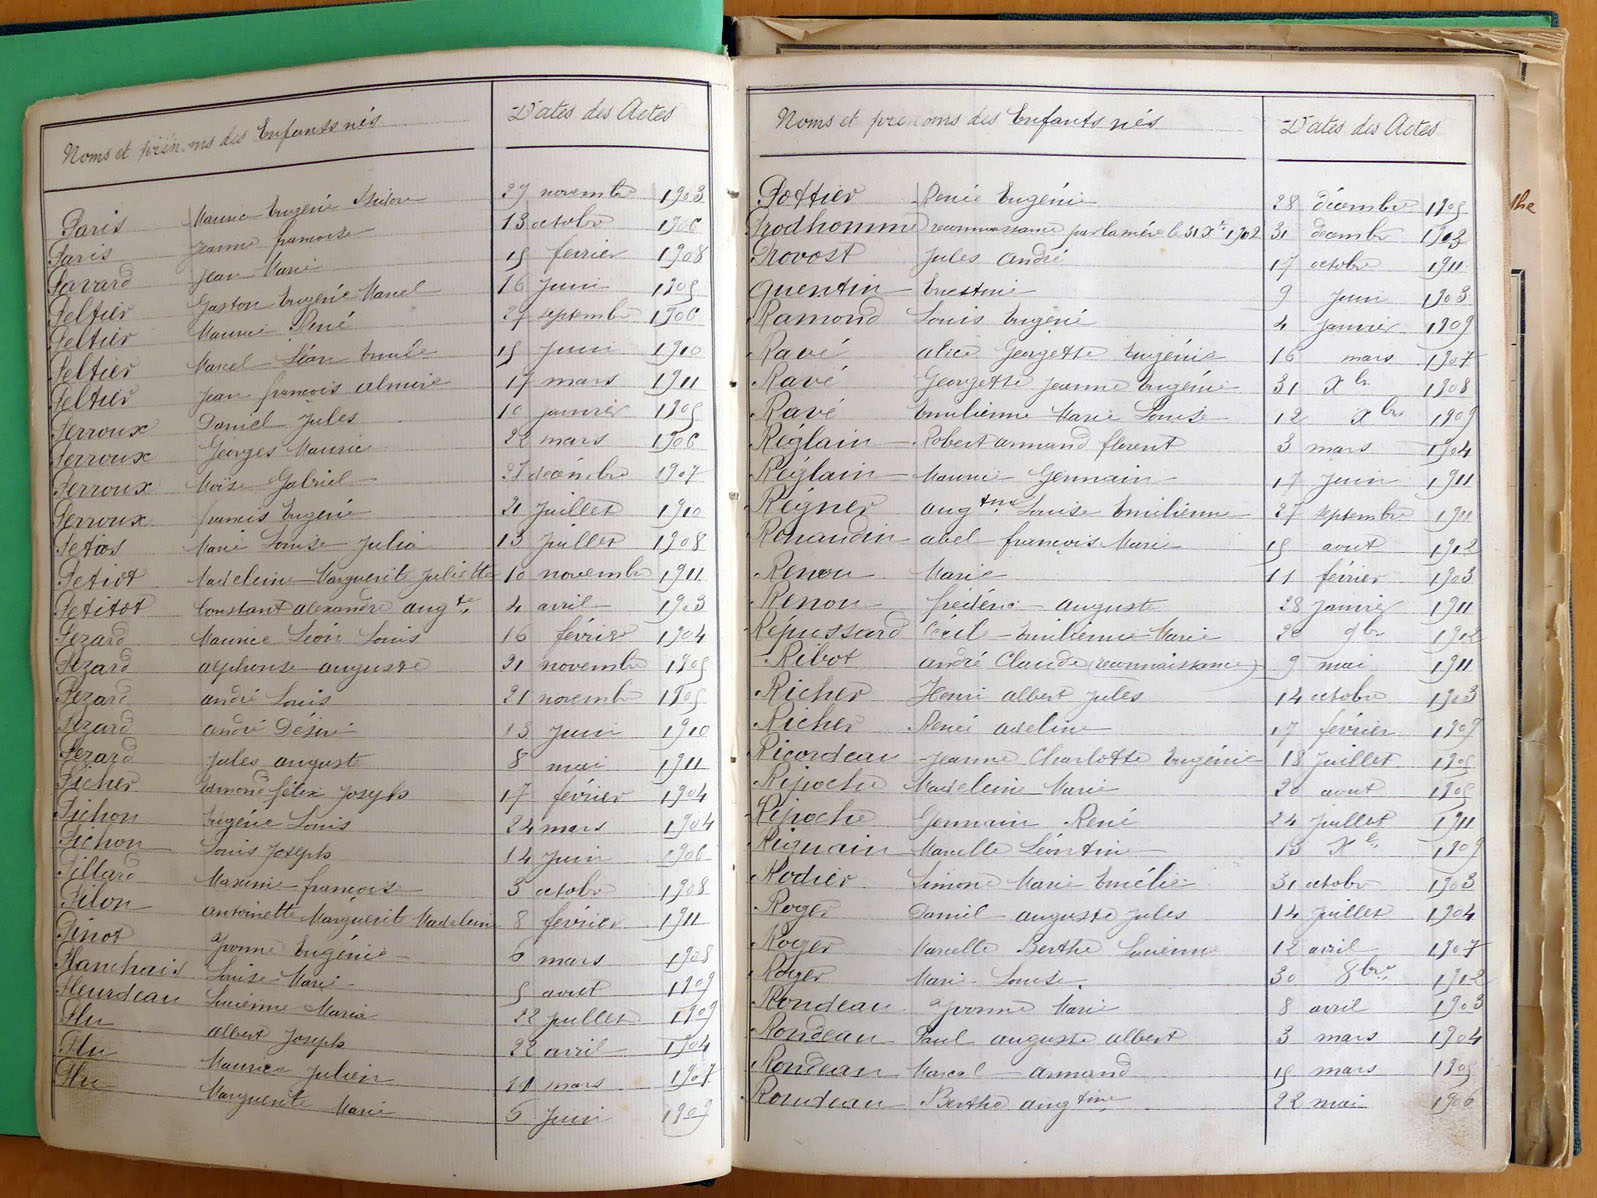 Noms et prénoms des Enfants nés Dates des Actes
Paris Maurice Eugène Isidore 27 novembre 1903
Paris Jeanne françoise 13 octobre 1906
Pavard Jean Marie 15 février 1908
Peltier Gaston Eugène Marcel 16 Juin 1905
Peltier Maurice René 27 septembre 1906
Peltier Marcel Léon Emile 15 Juin 1910
Peltier Jean françois almire 17 mars 1911
Perroux Daniel Jules 10 janvier 1905
Perroux Georges Maurice 22 mars 1906
Perroux Moïse Gabriel 27 décembre 1907
Perroux francis Eugène 21 Juillet 1910
Petios Marie Louise Julia 13 Juillet 1908
Petiot Madeleine Marguerite Juliette 10 novembre 1911
Petitot Constant alexandre augte 4 avril 1903
Pezard Maurice Léon Louis 16 février 1904
Pezard alphonse auguste 21 novembre 1905
Pezard andré Louis 21 novembre 1905
Pezard andré Désiré 13 Juin 1910
Pezard Jules auguste 8 mai 1911
Picher Edmond félix Joseph 17 février 1904
Pichon Eugène Louis 24 mars 1904
Pichon Louis Joseph 14 Juin 1906
Pillard Maxime françois 3 octobre 1908
Pilon antoinette Marguerite Madeleine 8 février 1911
Pinot Yvonne Eugénie 6 mars 1908
Planchais Louise Marie 5 avout 1909
Pleurdeau Lucienne Maria 22 juillet 1909
Plu albert Joseph 22 avril 1904
Plu Maurice Julien 11 mars 1907
Plu Marguerite Marie 5 Juin 1909
Noms et prénoms des Enfants nés Dates des Actes
Pottier René Eugène 28 décembre 1905
Prodhomme reconnaissance par la mère le 31 Xbre 1902 31 décembre 1902
Provost Jules andré 17 octobre 1911
quentin Ernestine 9 Juin 1903
Ramond Louis Eugène 4 janvier 1909
Ravé alice Georgette Eugénie 16 mars 1907
Ravé Georgette Jeanne Eugénie 31 Xbr 1908
Ravé Emilienne Marie Louise 12 Xbre 1909
Réglain Robert armand florent 3 mars 1904
Réglain Maurice Germain 17 Juin 1911
Régner augtine Louise Emilienne 27 septembre 1911
Renaudin abel françois Marie 15 avout 1912
Renou Marie 11 février 1903
Renou frédéric auguste 28 janvier 1911
Répussard Cécile Emilienne Marie 20 9br 1912
Ribot andré Claude (reconnaissance) 9 mai 1911
Richer Henri albert Jules 14 octobre 1903
Richer Renée adeline 17 février 1909
Ricordeau Jeanne Charlotte Eugénie 18 Juillet 1905
Ripoche Madeleine Marie 20 avout 1905
Ripoche Germain René 24 Juillet 1911
Rignain Marcelle Léontine 13 Xbre 1909
Rodier Simone Marie Emélie 31 octobre 1903
Roger Daniel auguste Jules 14 Juillet 1904
Roger Marcelle Berthe Lucienne 12 avril 1907
Roger Marie Louise 30 8bre 1912
Rondeau Yvonne Marie 8 avril 1903
Rondeau Paul auguste albert 3 mars 1904
Rondeau Marcel armand 15 mars 1905
Rondeau Berthe augtine 22 mai 1906